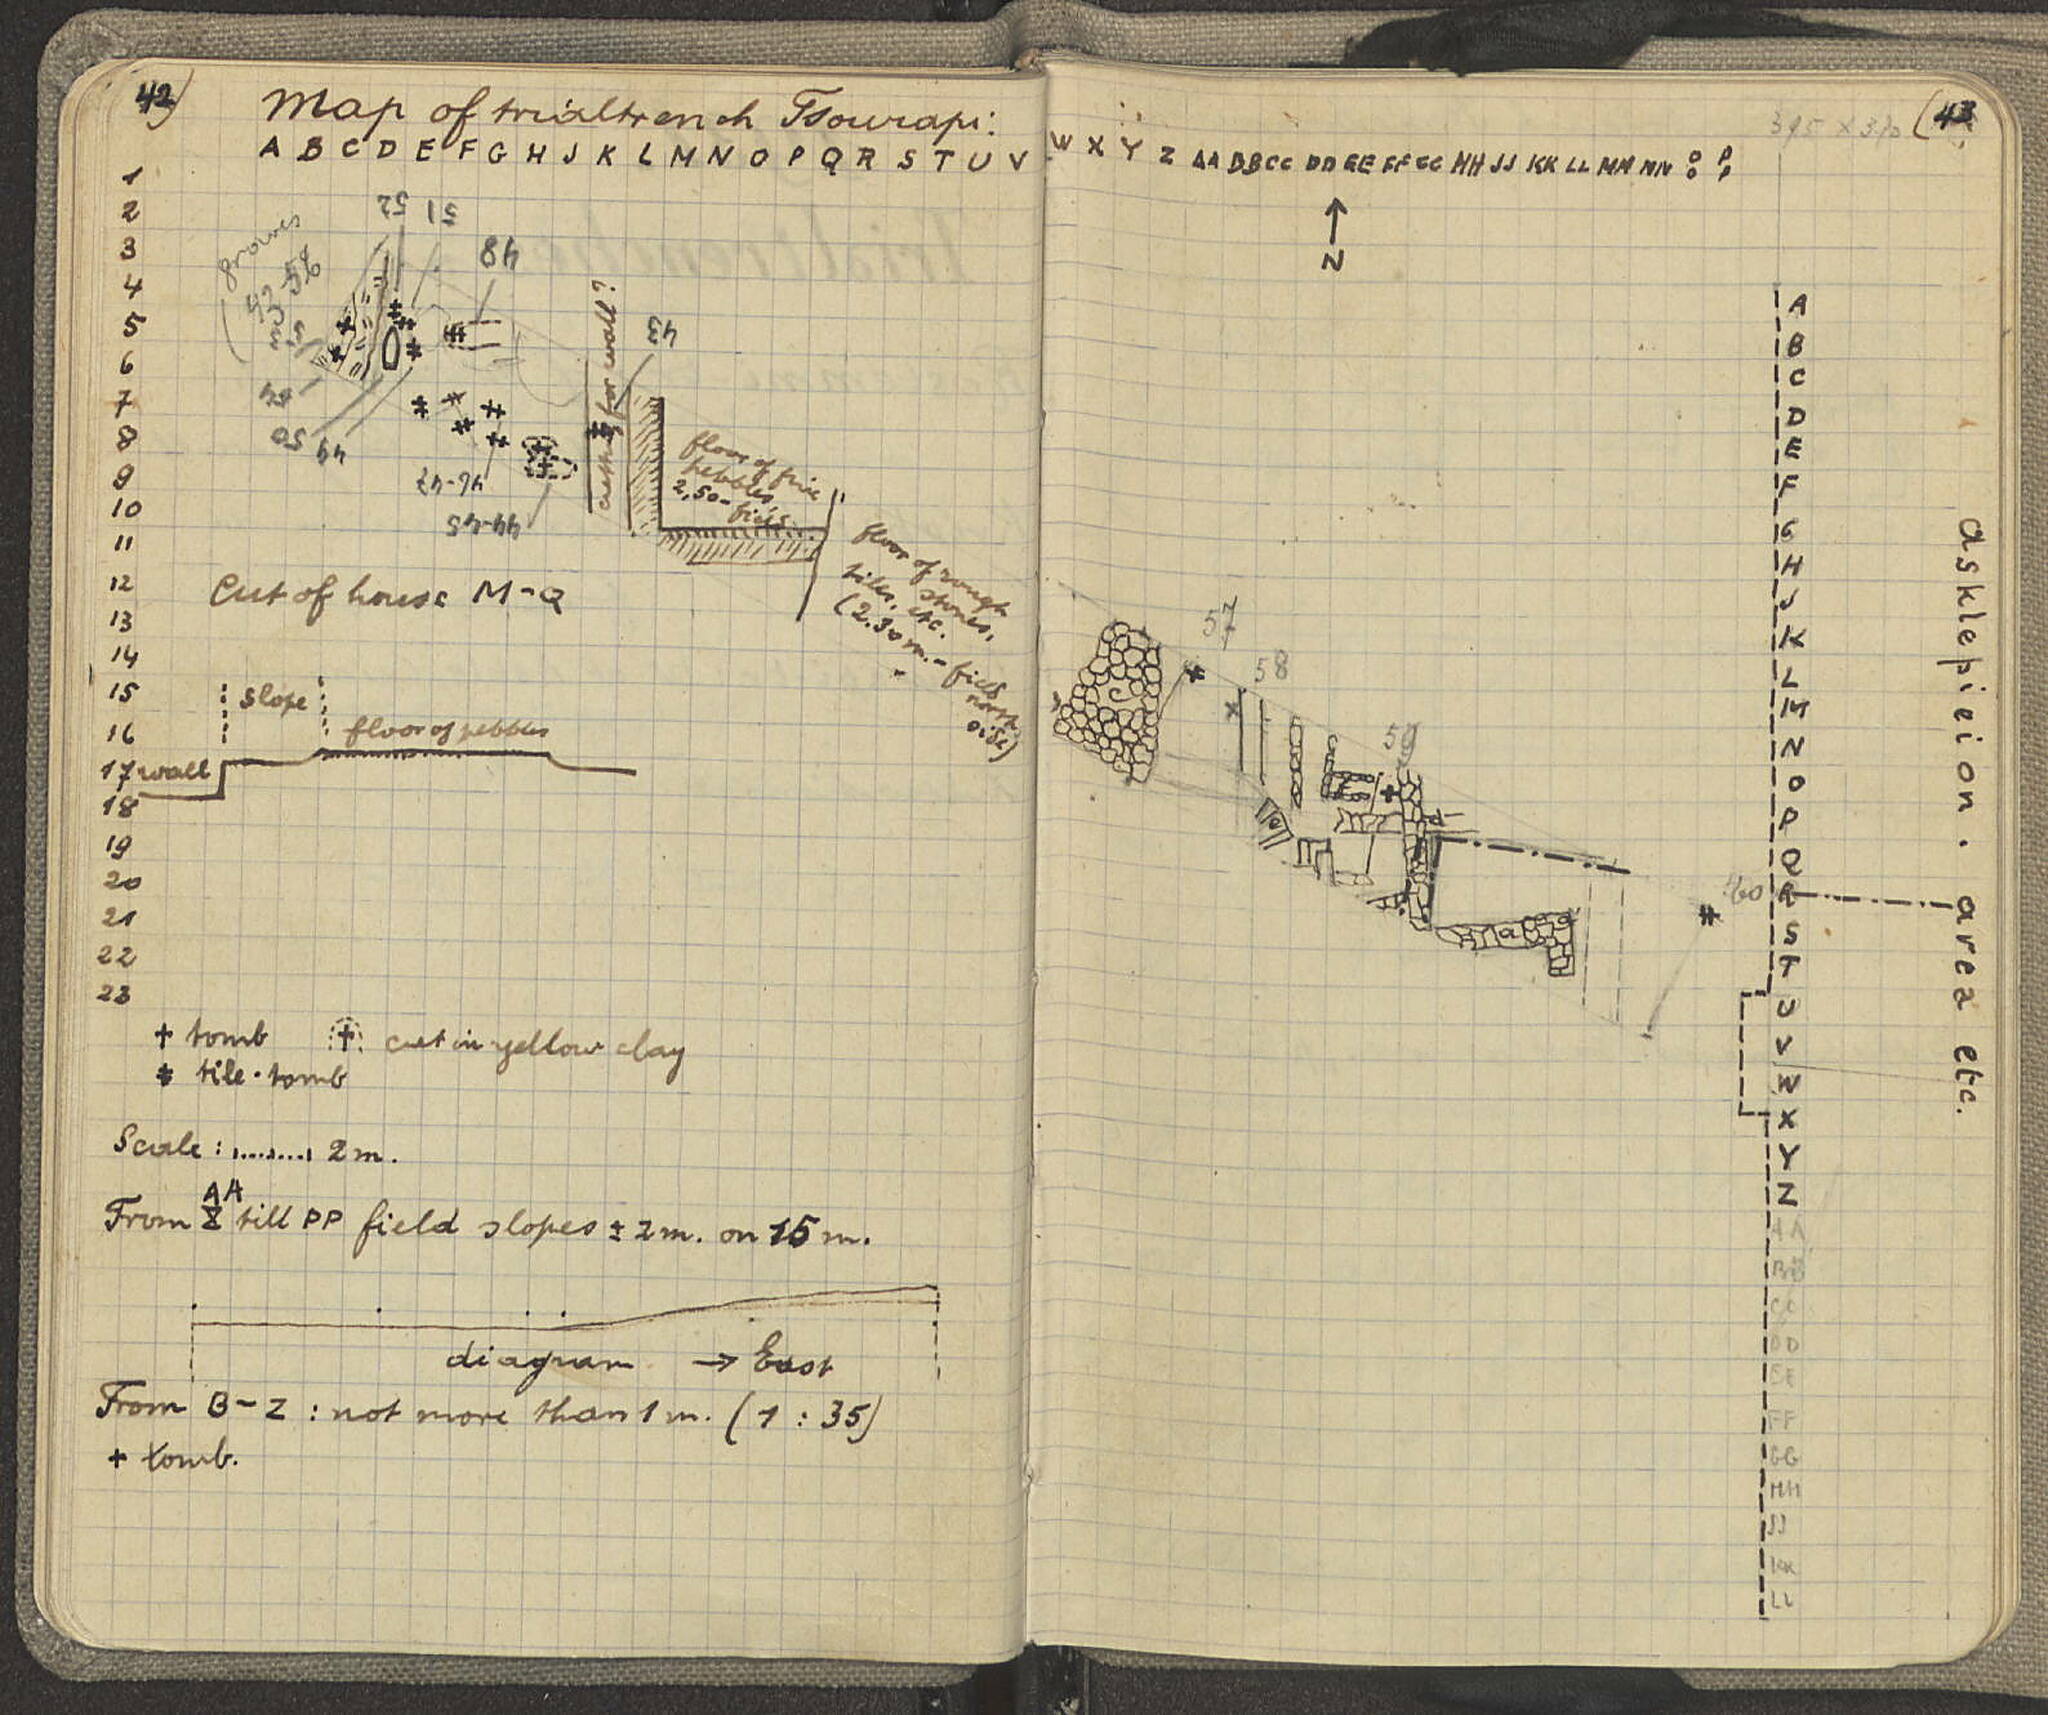 42)
Map of trialtrench Tsourapi:
A B C D E F G H J K L M N O P Q R S T U V
1
2
3
4
5
6
7
8
9
10
11
12
13
14
15
16
17
18
19
20
21
22
23
graves
43-56
52
51
48
43
54
50
49
46-47
44-45
cutting for wall?
floor of fine
pebbles
2,50-field
floor of rough
stones,
tiles, etc.
(2.30m.-field
north
side)
Cut of house M-Q
slope
floor of pebbles
wall
+ tomb
+ cut in yellow clay
‡ tile-tomb
Scale: 2m.
AA
From Z till PP field slopes ± 2m. on 15 m.
diagram → East
From B-Z : not more than 1 m. (1 : 35)
+ tomb.
(43
395 x 310
W X Y Z AA BB CC DD EE FF GG HH JJ KK LL MM NN OO PP
N
57
58
59
60
c
e
d
a
A
B
C
D
E
F
G
H
J
K
L
M
N
O
P
Q
R
S
T
U
V
W
X
Y
Z
AA
BB
CC
DD
EE
FF
GG
HH
JJ
KK
LL
asklepieion. area etc.